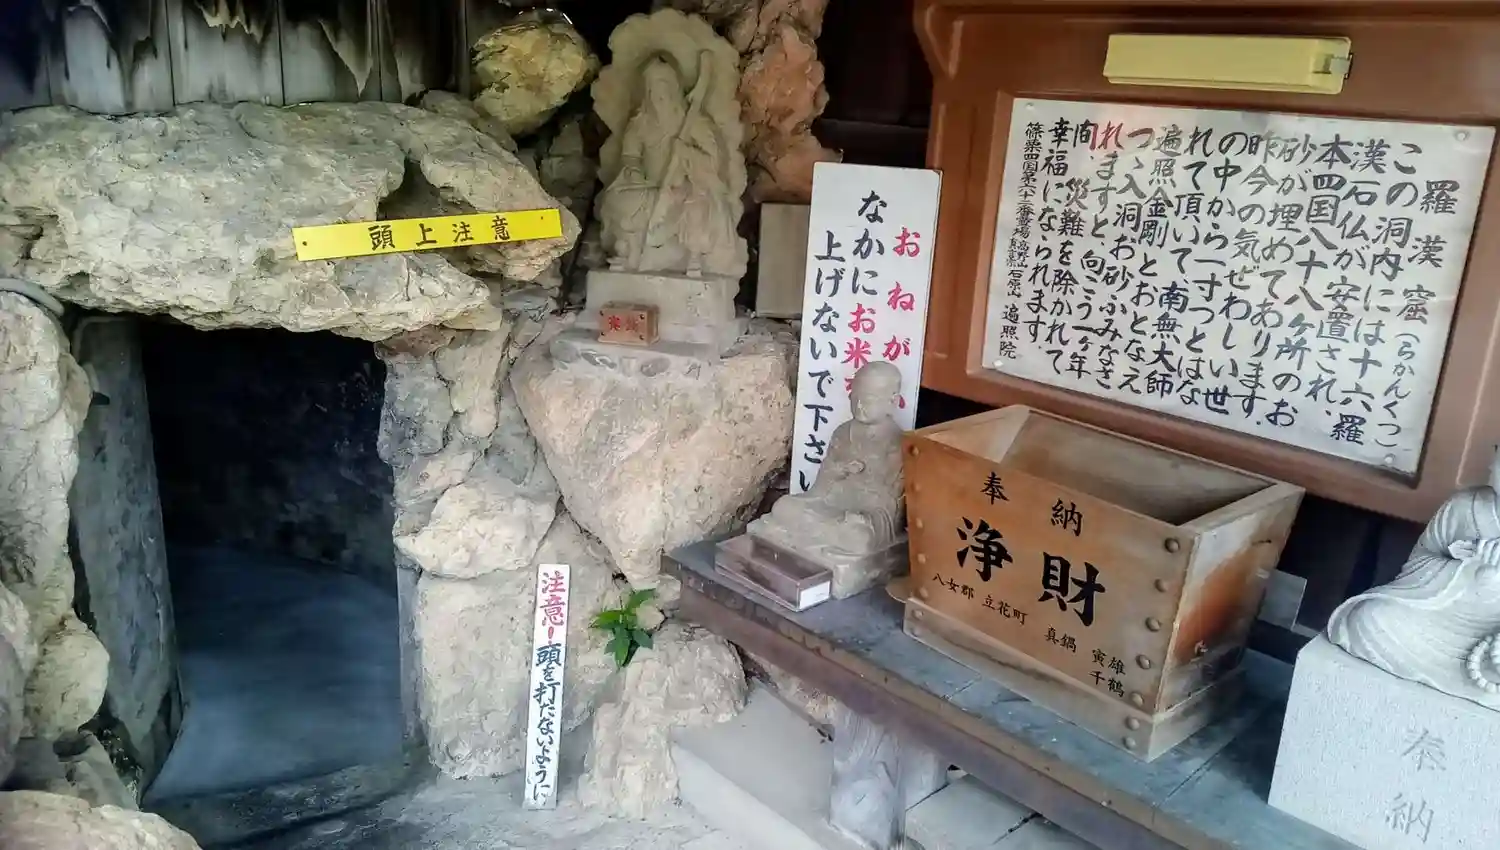 頭上注意
賽銭
おねがい
なかにお米を
上げないで下さい
注意!頭を打たないように
羅漢窟(らかんくつ)
この洞内には十六羅
漢石仏が安置され、
本四国八十八ヶ所のお
砂が埋めてあります。
昨今の気ぜわしい世
の中から一寸つとはな
れて頂いて南無大師
遍照金剛とおとなえ
つゝ入洞お砂ふみなさ
れますと、向こう一ヶ年
間、災難を除かれて
幸福になられます。
篠栗四国第六十二番霊場 高野山真言宗 石原山 遍照院
奉納
浄財
八女郡 立花町
真鍋 寅雄
千鶴
奉納